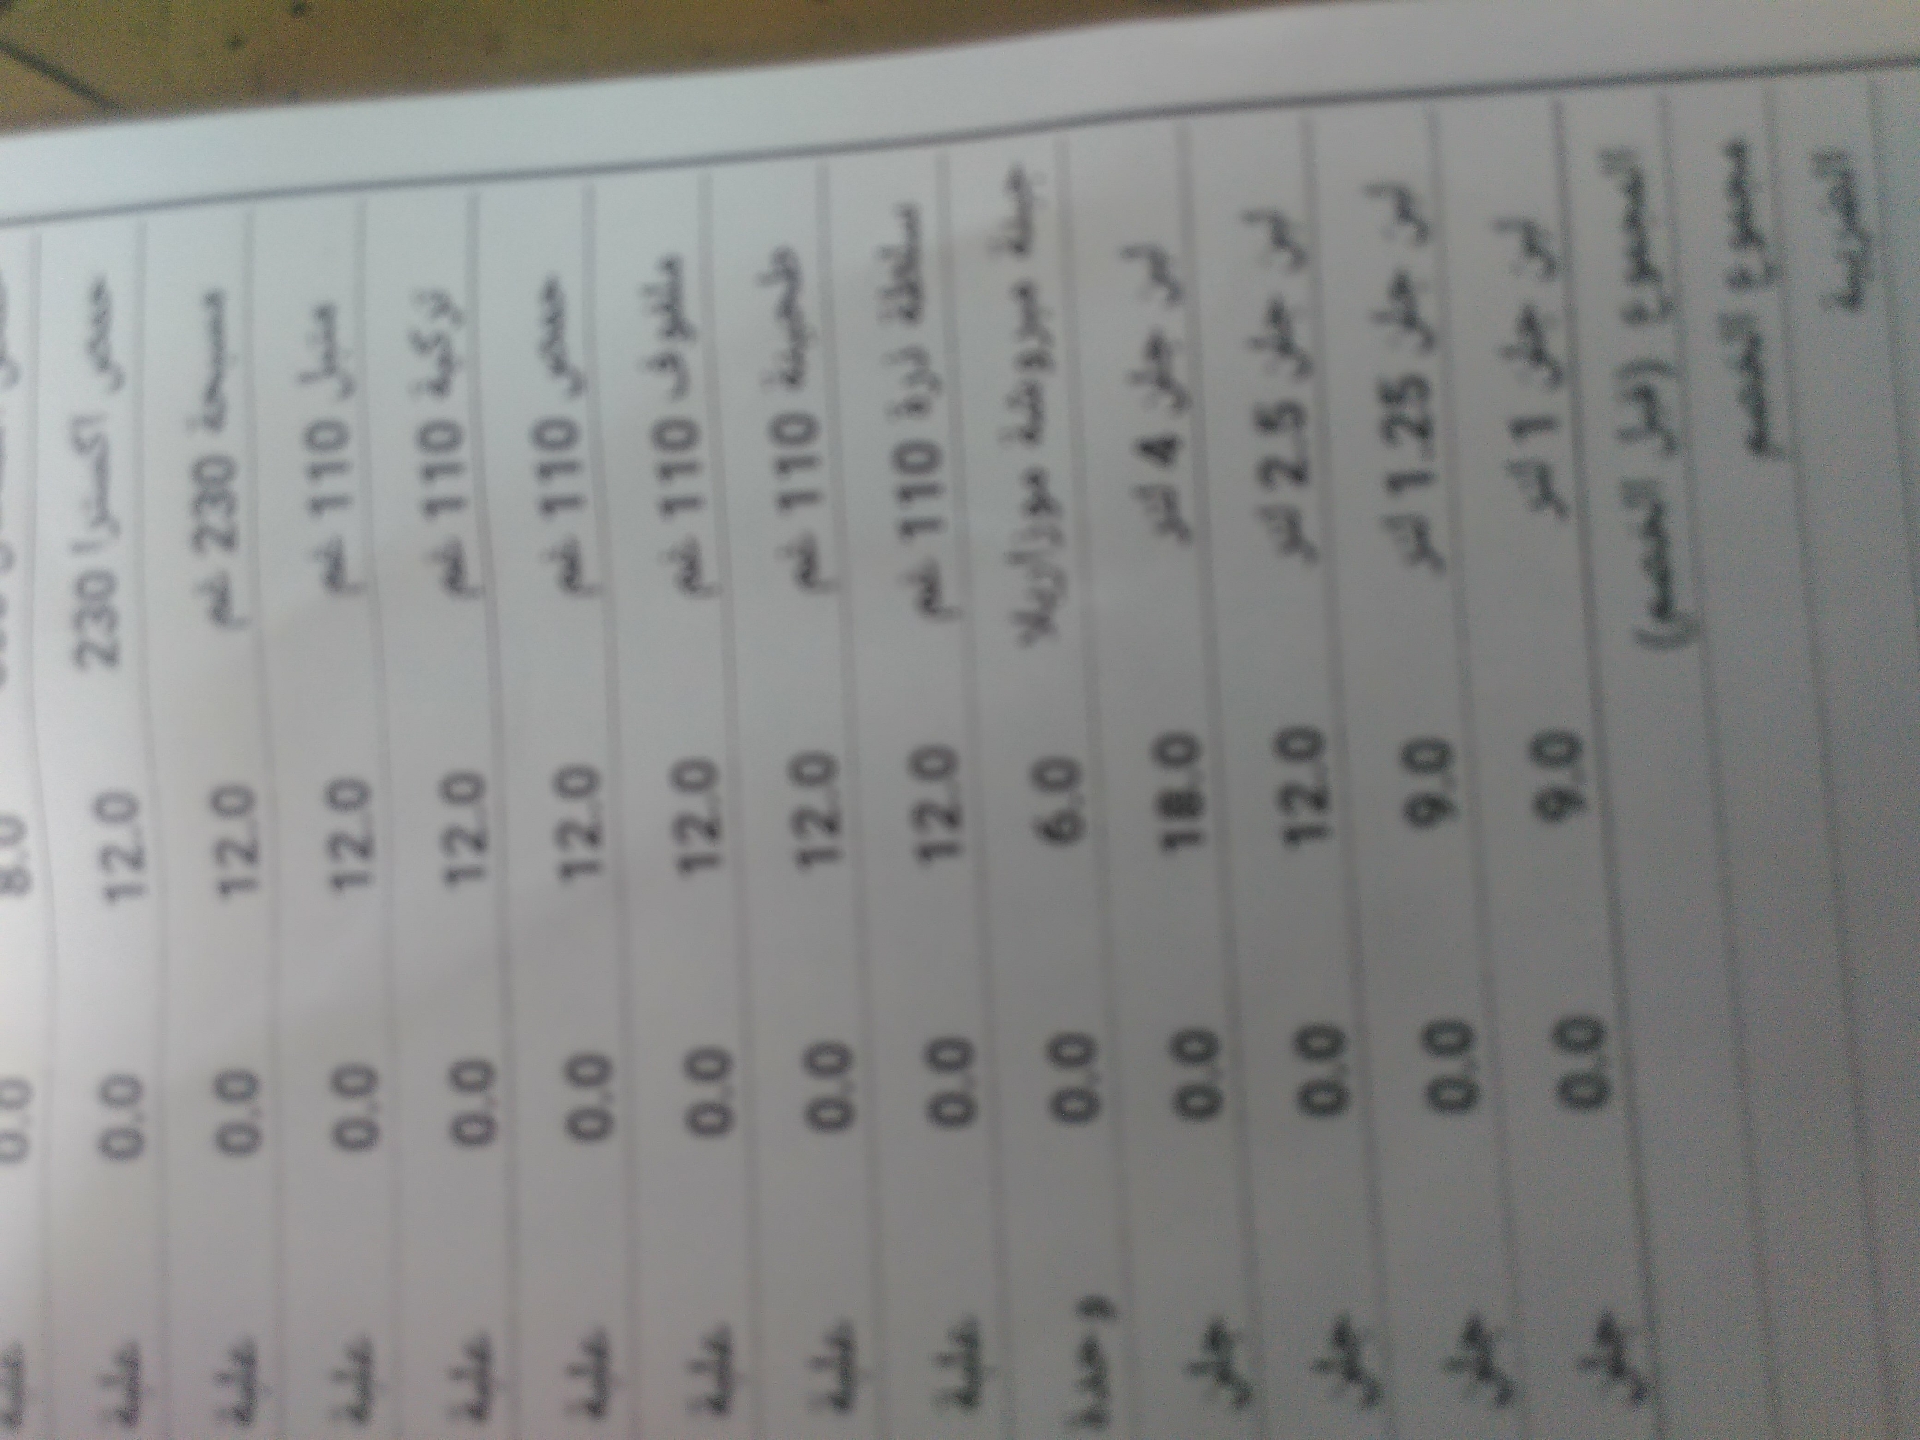 8.0 0.0 علبة
حمص اكسترا 230 12.0 0.0 علبة
مسبحة 230 غم 12.0 0.0 علبة
متبل 110 غم 12.0 0.0 علبة
تركية 110 غم 12.0 0.0 علبة
حمص 110 غم 12.0 0.0 علبة
ملفوف 110 غم 12.0 0.0 علبة
طحينة 110 غم 12.0 0.0 علبة
سلطة ذرة 110 غم 12.0 0.0 علبة
جبنة مبروشة موزاريلا 6.0 0.0 وحدة
لبن جلن 4 لتر 18.0 0.0 جلن
لبن جلن 2.5 لتر 12.0 0.0 جلن
لبن جلن 1.25 لتر 9.0 0.0 جلن
لبن جلن 1 لتر 9.0 0.0 جلن
المجموع (قبل الخصم)
مجموع الخصم
الضريبة